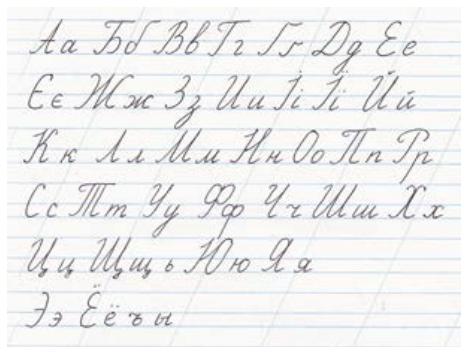 Аа Бб Вв Гг Ґґ Дд Ее
Єє Жж Зз Ии Іі Її Йй
Кк Лл Мм Нн Оо Пп Рр
Сс Тт Уу Фф Чч Шш Хх
Цц Щщ ь Юю Яя
Ээ Ёё ъ ы